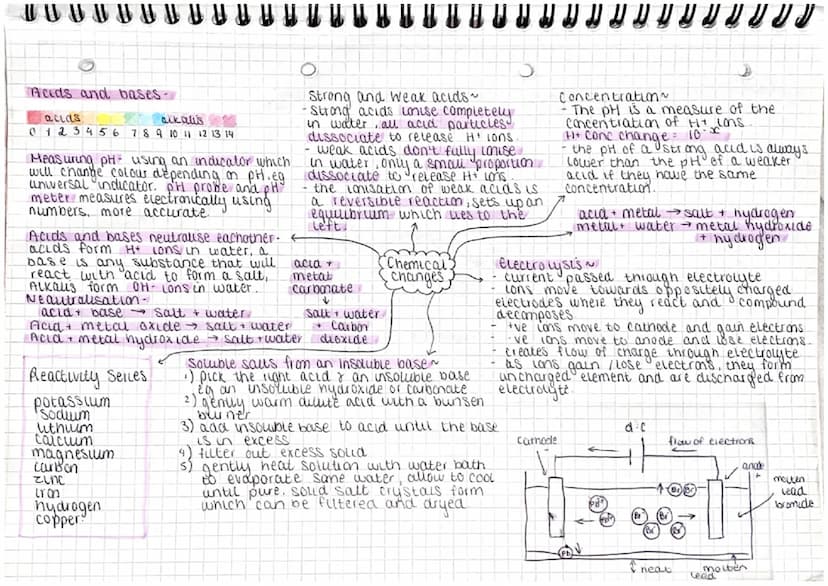 Acids and bases-
acids alkalis
0 1 2 3 4 5 6 7 8 9 10 11 12 13 14
Measuring pH- using an indicator which
will change colour depending on pH, eg
universal indicator. pH probe and pH
meter measures electronically using
numbers, more accurate.
Acids and bases neutralise eachother-
acids form H+ ions in water, a
base is any substance that will
react with acid to form a salt,
Alkalis form OH- ions in water.
Neautralisation-
acid + base → salt + water
Acid + metal oxide → salt + water
Acid + metal hydroxide → salt + water
Reactivity Series
potassium
sodium
lithium
calcium
magnesium
carbon
zinc
iron
hydrogen
copper
Strong and Weak acids~
- Strong acids ionise completely
in water, all acid particles
dissociate to release H+ ions.
- weak acids don't fully ionise
in water, only a small proportion
dissociate to release H+ ions.
- the ionisation of weak acids is
a reversible reaction, sets up an
equilibrium which lies to the
left.
acid +
metal
carbonate
↓
salt + water
+ carbon
dioxide
Chemical
changes
Soluble salts from an insoluble base~
1) pick the right acid & an insoluble base
eg an insoluble hydroxide or carbonate
2) gently warm dilute acid with a bunsen
burner
3) add insoluble base to acid until the base
is in excess
4) filter out excess solid
5) gently heat solution with water bath
to evaporate some water, allow to cool
until pure, solid salt crystals form
which can be filtered and dryed.
Concentration~
- The pH is a measure of the
concentration of H+ ions.
H+ conc change = 10^-x
- the pH of a strong acid is always
lower than the pH of a weaker
acid if they have the same
concentration.
acid + metal → salt + hydrogen
metal + water → metal hydroxide
+ hydrogen
Electrolysis~
- current passed through electrolyte
- ions move towards oppositely charged
electrodes where they react and compound
decomposes
- +ve ions move to cathode and gain electrons
- -ve ions move to anode and lose electrons.
- creates flow of charge through electrolyte
- as ions gain/lose electrons, they form
uncharged element and are discharged from
electrolyte.
d.c
cathode
-
flow of electrons
anode
+
molten
lead
bromide
Br Br
Pb2+
Pb2+
Br- Br-
Br- Br-
Pb
↑ heat
molten
lead